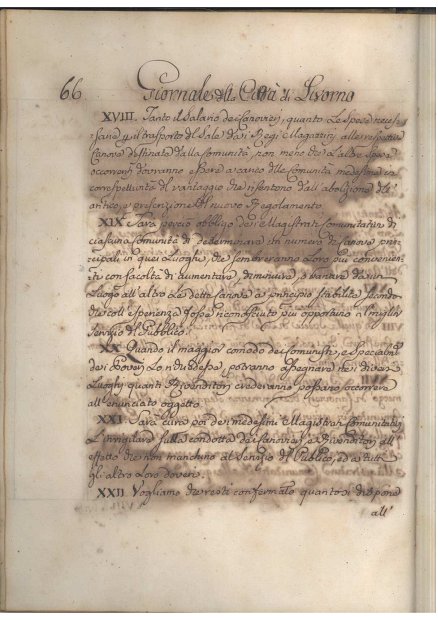 66 Giornale della Città di Livorno
XVIII. Tanto il Salario dei Canovieri, quanto le Spese neces-
sarie p il trasporto del Sale dai Regj Magazzini alle respettive
Canove destinate dalla Comunità, non meno che le altre Spese
occorrenti dovranno essere a carico delle Comunità medesime in
correspettività del vantaggio che risentono dall'abolizione dell'
antico, e prescrizione del nuovo Regolamento.
XIX. Sarà perciò obbligo dei Magistrati Comunitativi di
ciascuna Comunità di determinare un numero di Canove prin-
cipali in quei Luoghi, che sembreranno loro più convenien-
ti con facoltà di aumentare, diminuire, e variare da un
Luogo all'altro le dette Canove a principio stabilite secondo
che coll'esperienza fosse riconosciuto più opportuno al miglior
servizio del Pubblico.
XX. Quando il maggior comodo dei Comunisti, e specialm.
dei Poveri lo richiedesse, potranno assegnare nei diversi
Luoghi quanti Rivenditori crederanno possano occorrere
all'enunciato oggetto.
XXI. Sarà cura poi dei medesimi Magistrati Comunitativi
l'invigilare sulla condotta dei Canovieri, e Rivenditori all'
effetto che non manchino al Servizio del Pubblico, ed a tutti
gli altri loro doveri.
XXII. Vogliamo che resti confermato quanto si dispone
all'